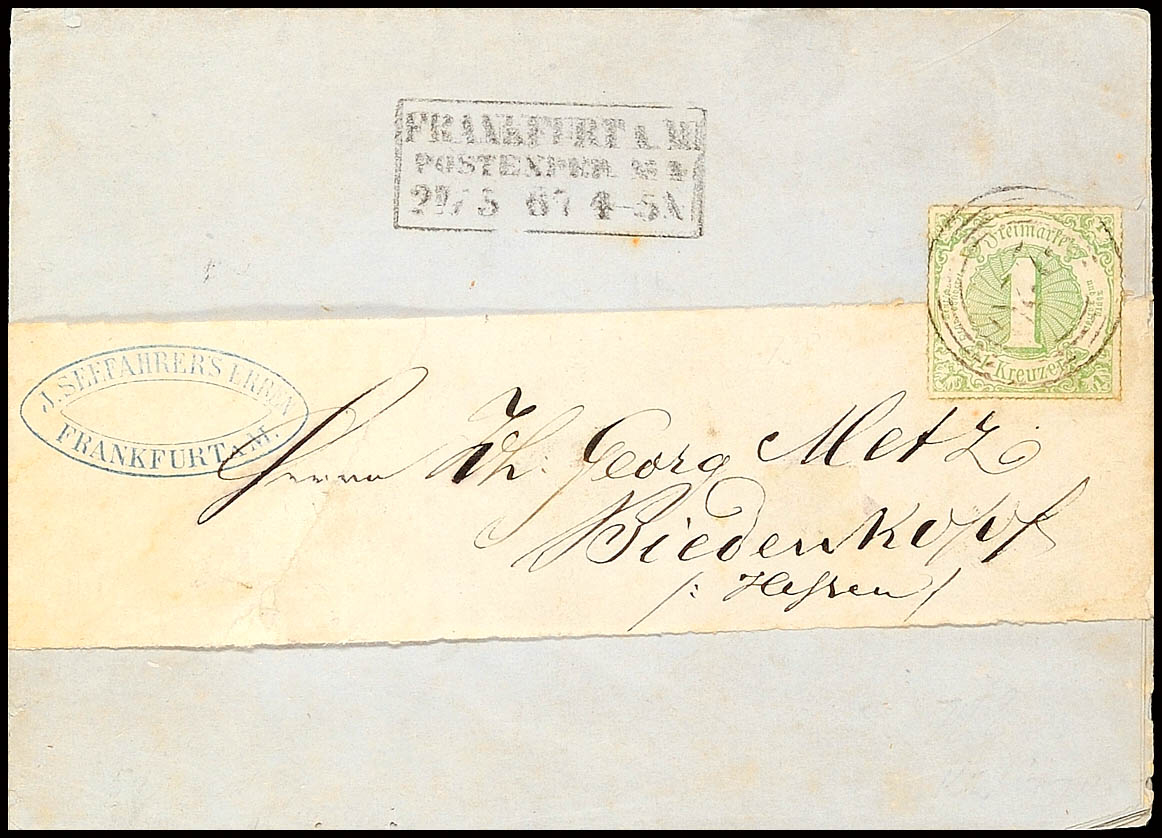 FRANKFURT A. M.
POSTEXPED. № 1
67 4-5 N
Freimarke
1
Kreuzer
J. SEEFAHRER'S ERBEN
FRANKFURT A.M.
Herrn Th: Georg Metz
Biedenkopf
/: Hessen /